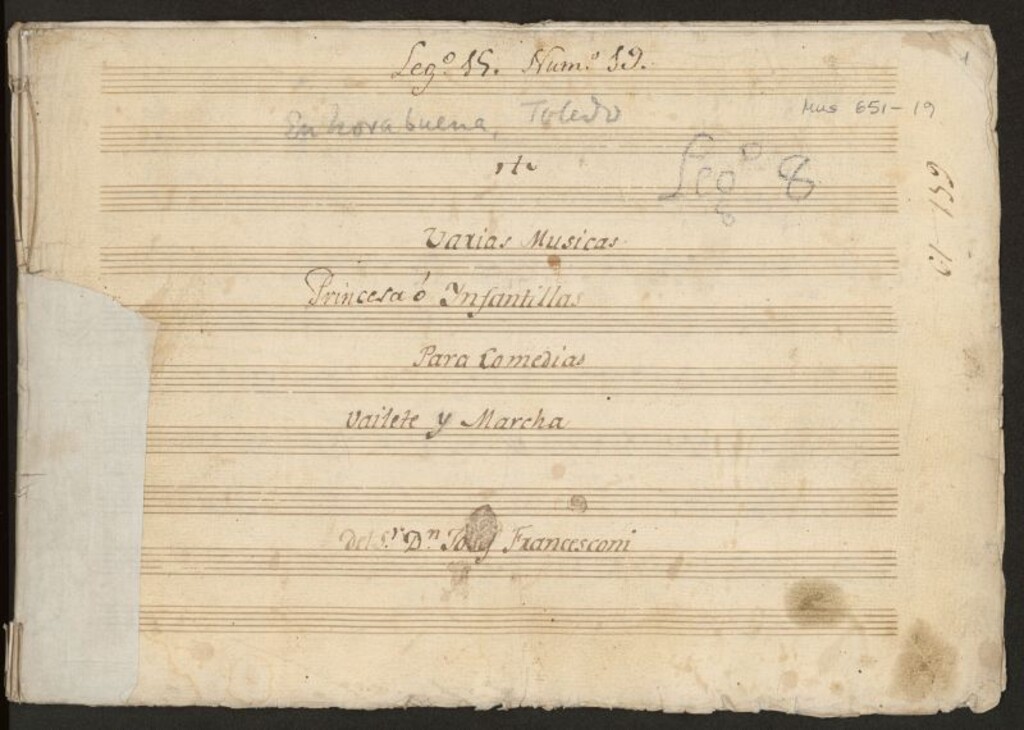 Leg.º 15. Num.º 19.
Enhorabuena, Toledo
Mus 651-19
Leg.º 8
Varias Musicas
Princesa ó Ynfantillas
Para Comedias
Vailete y Marcha
del S.r D.n Francesconi